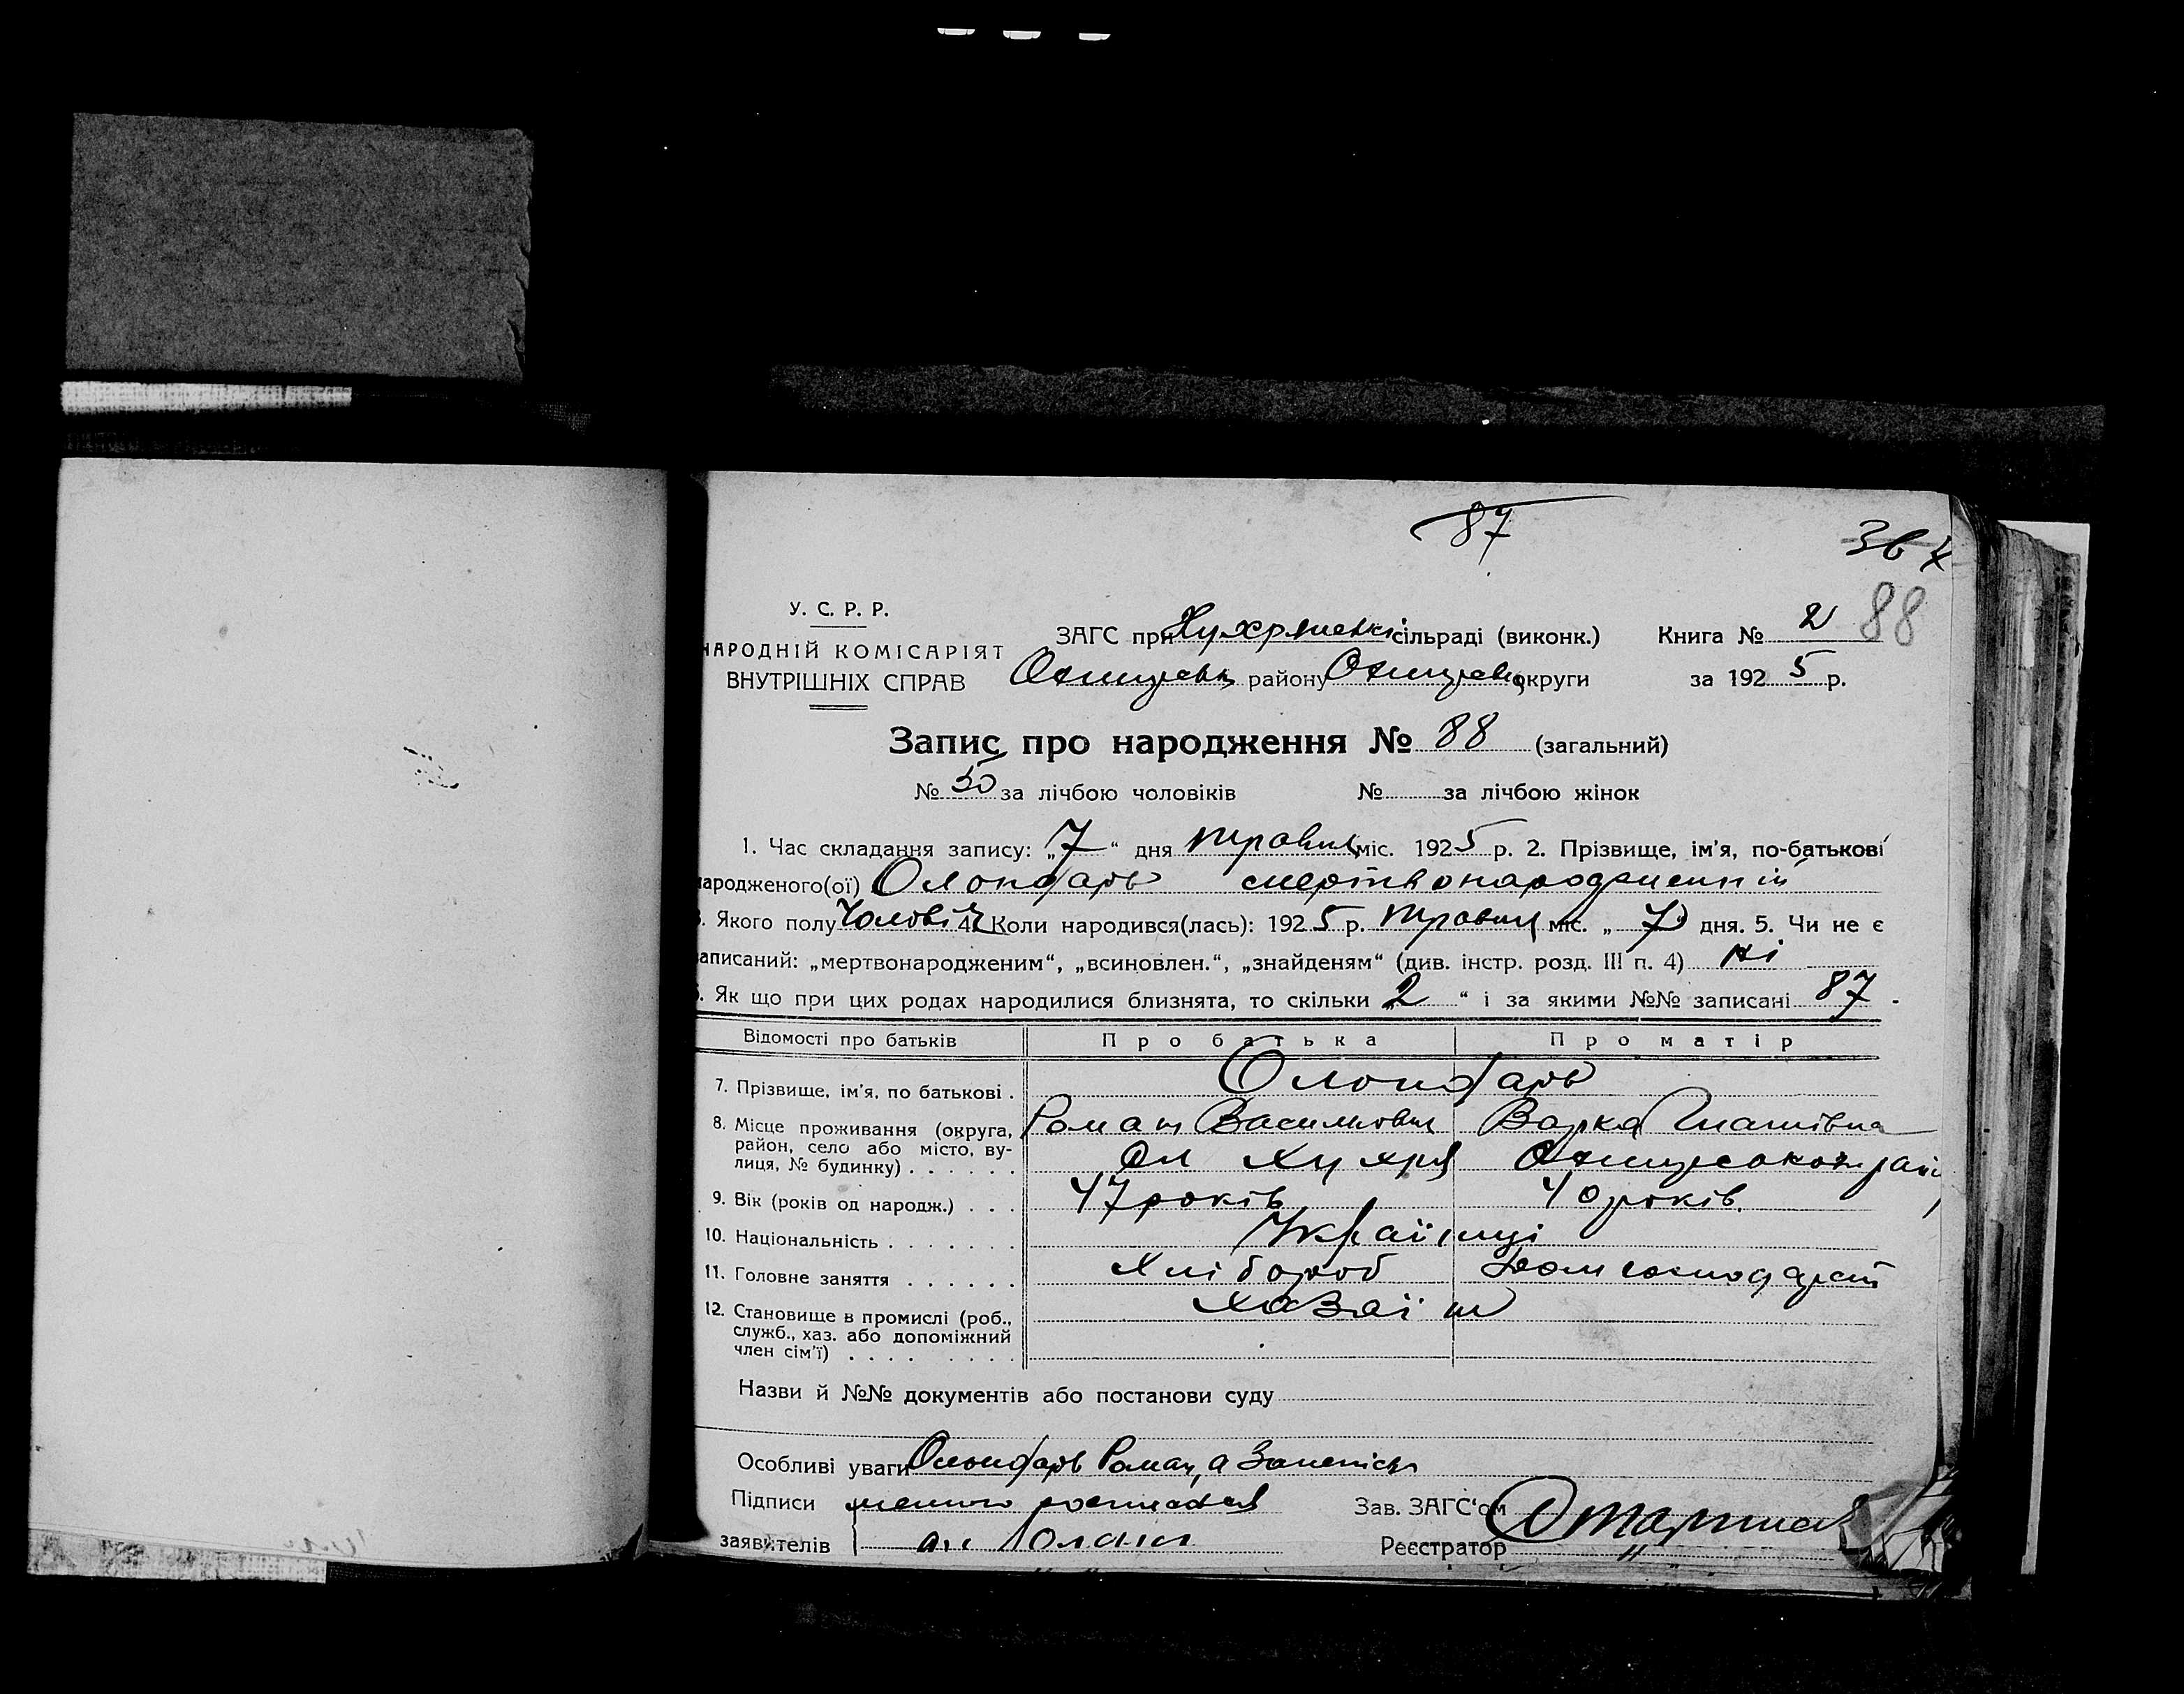 87
367
88
У. С. Р. Р.
НАРОДНІЙ КОМІСАРІЯТ
ВНУТРІШНІХ СПРАВ
ЗАГС при Хухрянскі сільраді (виконк.) Книга № 2
Охтирськ району Охтирськ округи за 1925 р.
Запис про народження № 88 (загальний)
№ 50 за лічбою чоловіків № за лічбою жінок
1. Час складання запису: „7“ дня травня міс. 1925 р. 2. Прізвище, ім'я, по-батькові
народженого(ої) Олонфарь смертвонародженний
3. Якого полу Чоловіч 4. Коли народився(лась): 1925 р. травня міс. „7“ дня. 5. Чи не є
записаний: „мертвонародженим“, „всиновлен.“, „знайденям“ (див. інстр. розд. III п. 4) ні
6. Як що при цих родах народилися близнята, то скільки „2“ і за якими №№ записані 87.
Відомості про батьків Про батька Про матір
7. Прізвище, ім'я, по батькові . Олонфарь
Роман Васильович Варка
8. Місце проживання (округа, район, село або місто, вулиця, № будинку) . . . . . . Хухря Охтирського рай
9. Вік (років од народж.) . . . 47 років 40 років.
10. Національність . . . . . . . Українці
11. Головне заняття . . . . . . Хлібороб Дом господарст
12. Становище в промислі (роб., служб., хаз. або допоміжний член сім'ї) . . . . . . . . Хазаїн
Назви й №№ документів або постанови суду
Особливі уваги Олонфарь Роман, а
Підписи
заявителів
Зав. ЗАГС'ом
Реєстратор "